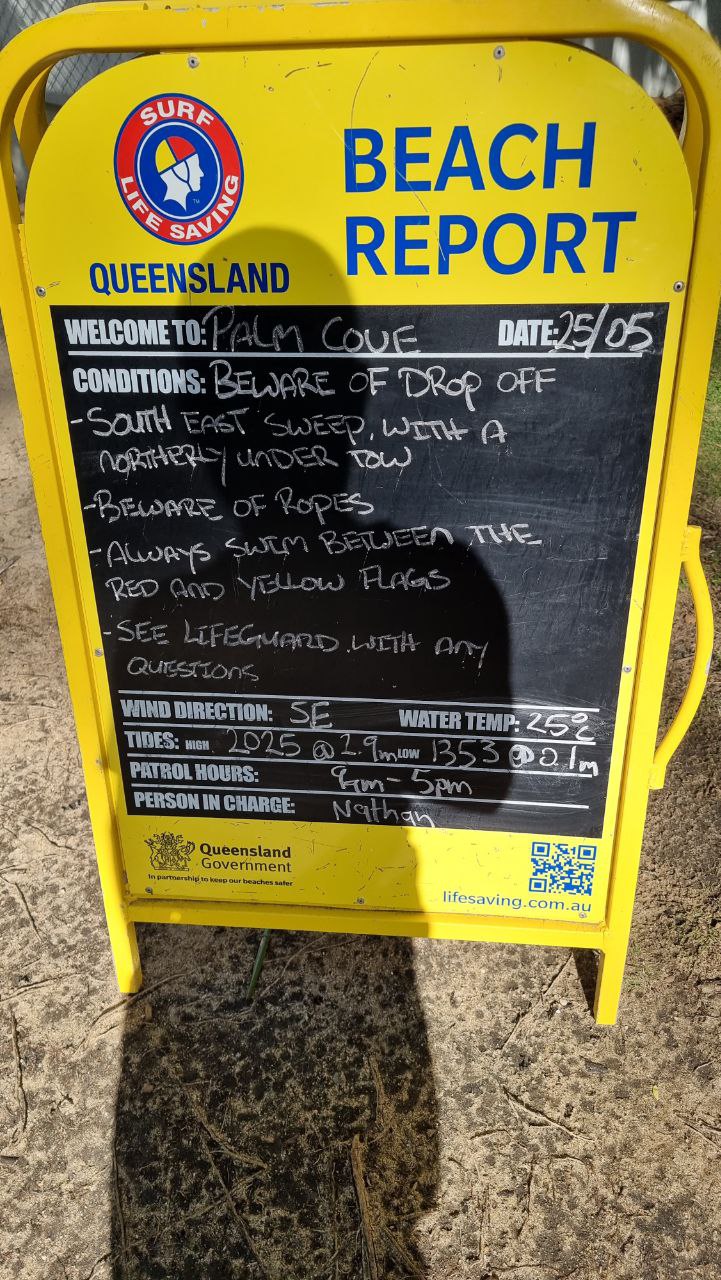 SURF
LIFE SAVING
TM
QUEENSLAND
BEACH
REPORT
WELCOME TO: PALM COVE DATE: 25/05
CONDITIONS: BEWARE OF DROP OFF
- SOUTH EAST SWEEP, WITH A
NORTHERLY UNDER TOW
- BEWARE OF ROPES
- ALWAYS SWIM BETWEEN THE
RED AND YELLOW FLAGS
- SEE LIFEGUARD WITH ANY
QUESTIONS
WIND DIRECTION: SE WATER TEMP: 25°C
TIDES: HIGH 2025 @ 2.9m LOW 1353 @ 0.1m
PATROL HOURS: 9am - 5pm
PERSON IN CHARGE: Nathan
Queensland
Government
In partnership to keep our beaches safer
lifesaving.com.au